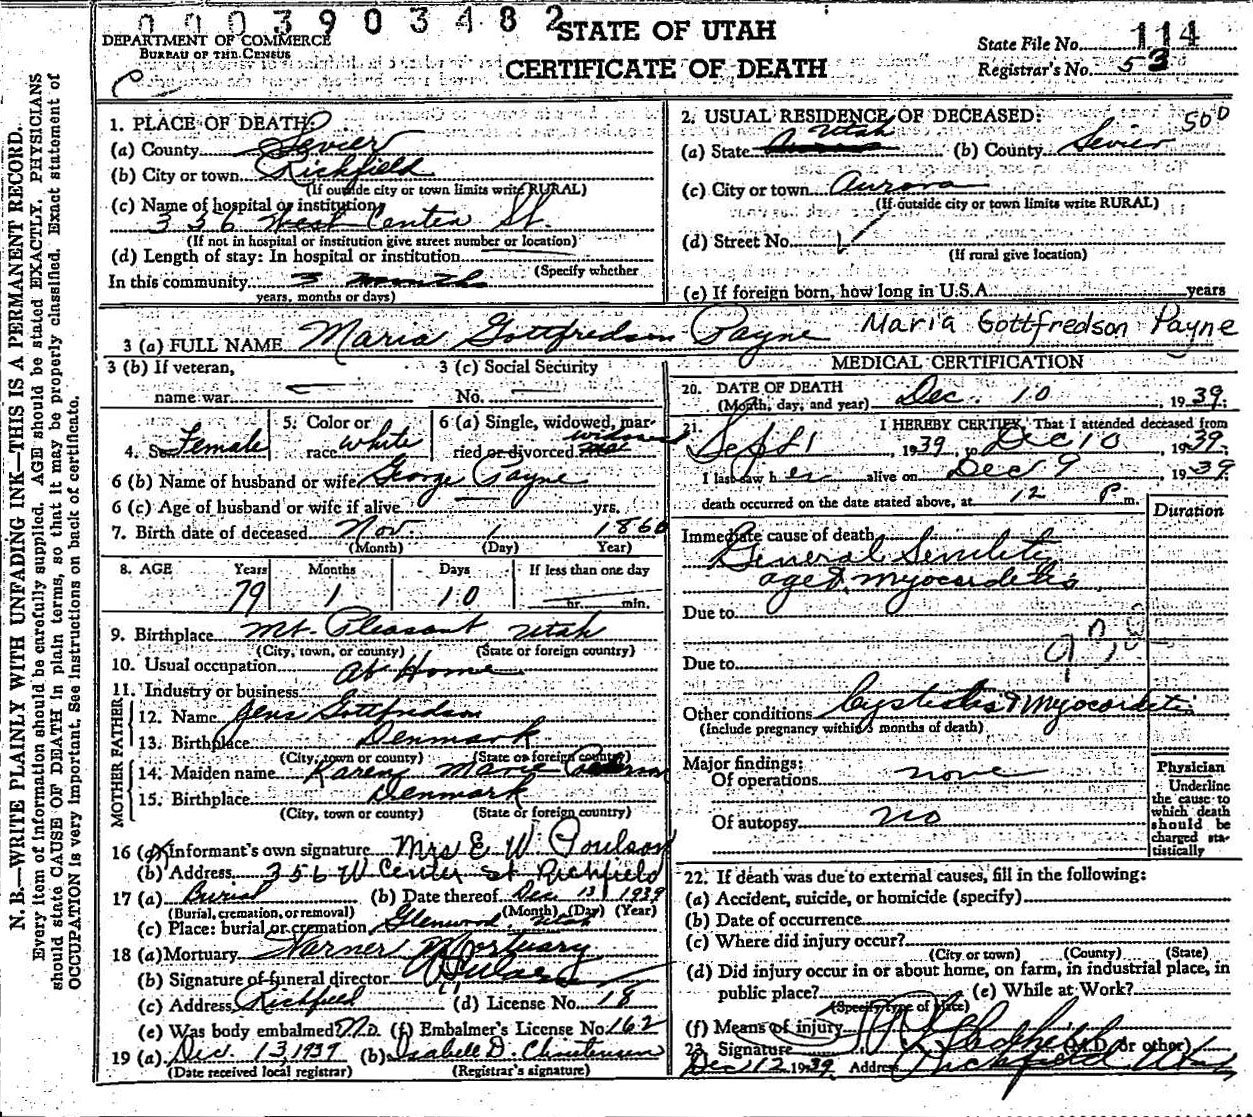 0003903482
STATE OF UTAH
DEPARTMENT OF COMMERCE
BUREAU OF THE CENSUS
CERTIFICATE OF DEATH
State File No. 114
Registrar's No. 53
C
N. B.—WRITE PLAINLY WITH UNFADING INK—THIS IS A PERMANENT RECORD.
Every item of information should be carefully supplied. AGE should be stated EXACTLY. PHYSICIANS
should state CAUSE OF DEATH in plain terms, so that it may be properly classified. Exact statement of
OCCUPATION is very important. See instructions on back of certificate.
1. PLACE OF DEATH:
(a) County Sevier
(b) City or town Richfield
(If outside city or town limits write RURAL)
(c) Name of hospital or institution
336 West Center St.
(If not in hospital or institution give street number or location)
(d) Length of stay: In hospital or institution
(Specify whether
In this community 3 month
years, months or days)
2. USUAL RESIDENCE OF DECEASED: 500
(a) State Utah (b) County Sevier
(c) City or town Aurora
(If outside city or town limits write RURAL)
(d) Street No.
(If rural give location)
(e) If foreign born, how long in U.S.A. years
3 (a) FULL NAME Maria Gottfredson Payne Maria Gottfredson Payne
3 (b) If veteran,
name war
3 (c) Social Security
No.
4. Sex Female
5. Color or
race white
6 (a) Single, widowed, mar-
ried or divorced widowed
6 (b) Name of husband or wife George Payne
6 (c) Age of husband or wife if alive yrs.
7. Birth date of deceased Nov. 1 1860
(Month) (Day) Year)
8. AGE Years Months Days If less than one day
79 1 10 hr. min.
9. Birthplace Mt. Pleasant Utah
(City, town, or county) (State or foreign country)
10. Usual occupation at Home
11. Industry or business
FATHER
12. Name Jens Gottfredson
13. Birthplace Denmark
(City, town or county) (State or foreign country)
MOTHER
14. Maiden name Karen Marie
15. Birthplace Denmark
(City, town or county) (State or foreign country)
16 (a) Informant's own signature Mrs E W Poulson
(b) Address 356 W Center St Richfield
17 (a) Burial (b) Date thereof Dec 13 1939
(Burial, cremation, or removal) (Month) (Day) (Year)
(c) Place: burial or cremation Glenwood Utah
18 (a) Mortuary Warner Mortuary
(b) Signature of funeral director
(c) Address Richfield (d) License No. 18
(e) Was body embalmed? No. (f) Embalmer's License No. 162
19 (a) Dec. 13, 1939 (b) Isabell D. Christensen
(Date received local registrar) (Registrar's signature)
MEDICAL CERTIFICATION
20. DATE OF DEATH
(Month, day, and year) Dec. 10, 1939.
21. I HEREBY CERTIFY, That I attended deceased from
Sept 1, 1939 to Dec 10, 1939.
I last saw her alive on Dec 9, 1939
death occurred on the date stated above, at 12 P. m.
Duration
Immediate cause of death
General Senility
age & myocarditis
Due to
Due to
Other conditions Cystitis & Myocarditis
(Include pregnancy within 3 months of death)
Major findings:
Of operations none
Of autopsy no
Physician
Underline
the cause to
which death
should be
charged sta-
tistically
22. If death was due to external causes, fill in the following:
(a) Accident, suicide, or homicide (specify)
(b) Date of occurrence
(c) Where did injury occur?
(City or town) (County) (State)
(d) Did injury occur in or about home, on farm, in industrial place, in
public place? (e) While at Work?
(Specify type of place)
(f) Means of injury
23. Signature (M.D. or other)
Dec 12 1939 Address Richfield Utah